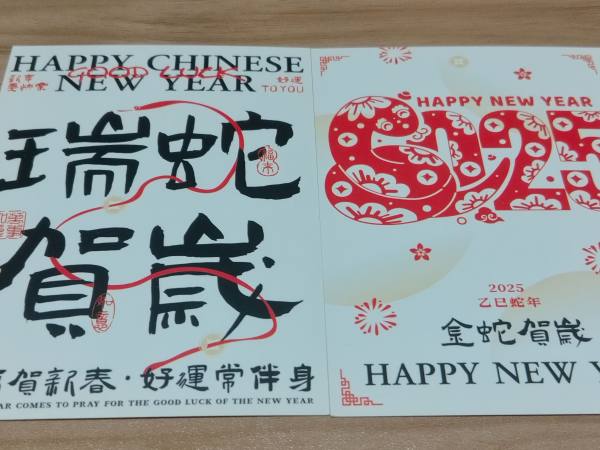 HAPPY CHINESE
GOOD LUCK
NEW YEAR
好運
TO YOU
瑞蛇
福来
賀歲
賀新春·好運常伴身
AR COMES TO PRAY FOR THE GOOD LUCK OF THE NEW YEAR
HAPPY NEW YEAR
2025
2025
乙巳蛇年
金蛇賀歲
HAPPY NEW Y